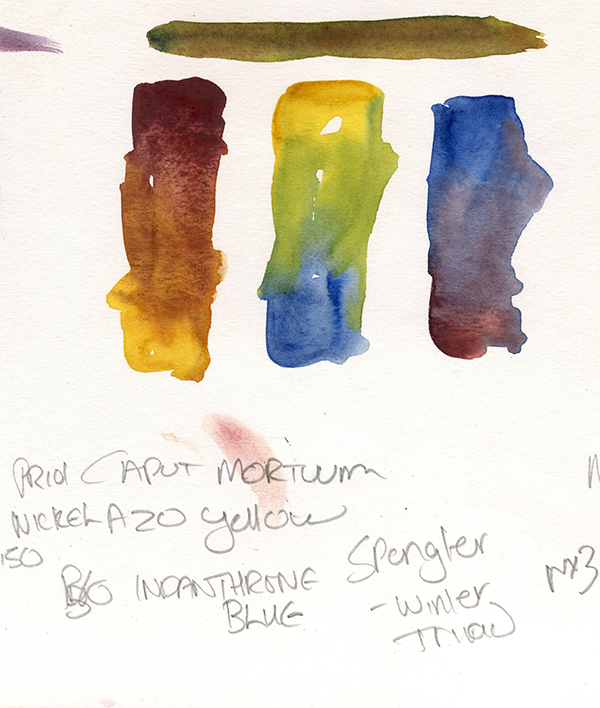 PR101 CAPUT MORTUUM
NICKEL AZO yellow
150
PB60 INDANTHRONE
BLUE
Spengler
-winter
TRIAD